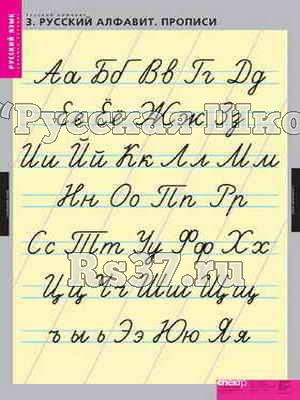 РУССКИЙ ЯЗЫК
3. РУССКИЙ АЛФАВИТ. ПРОПИСИ
Аа Бб Вв Гг Дд
Ее Ёё Жж Зз
"Русская Шко
Ии Йй Кк Лл Мм
Нн Оо Пп Рр
Сс Тт Уу Фф Хх
Rs37.ru
Цц Чч Шш Щщ
ъ ы ь Ээ Юю Яя
спектр